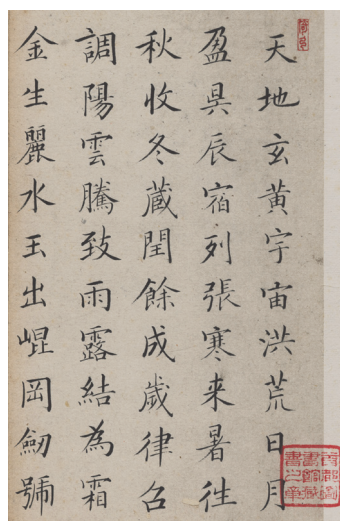 天地玄黃宇宙洪荒日月
盈昃辰宿列張寒来暑往
秋收冬藏閏餘成歲律召
調陽雲騰致雨露結為霜
金生麗水玉出崐岡劒號
首都圖
書館藏
書之章